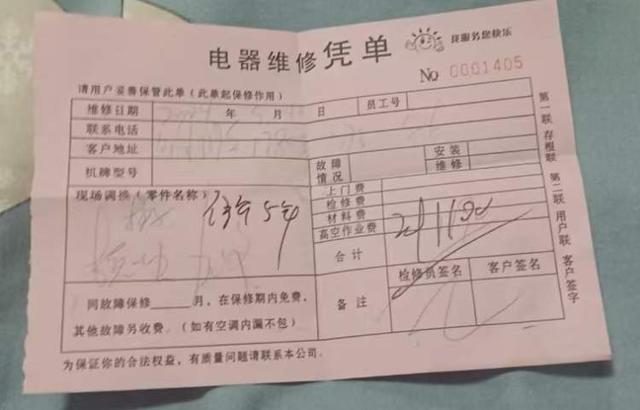 电器维修凭单
我服务您快乐
No 0001405
请用户妥善保管此单（此单起保修作用）
维修日期 年 月 日 员工号
联系电话
客户地址
故障情况
安装
维修
机牌型号
现场调换（零件名称）
保年5年
上门费
检修费
材料费
高空作业费
合计
检修员签名 客户签名
备注
同故障保修____月，在保修期内免费，
其他故障另收费。（如有空调内漏不包）
为保证你的合法权益，有质量问题请联系本公司．
第一联 存根联 第二联 用户联 客户签字